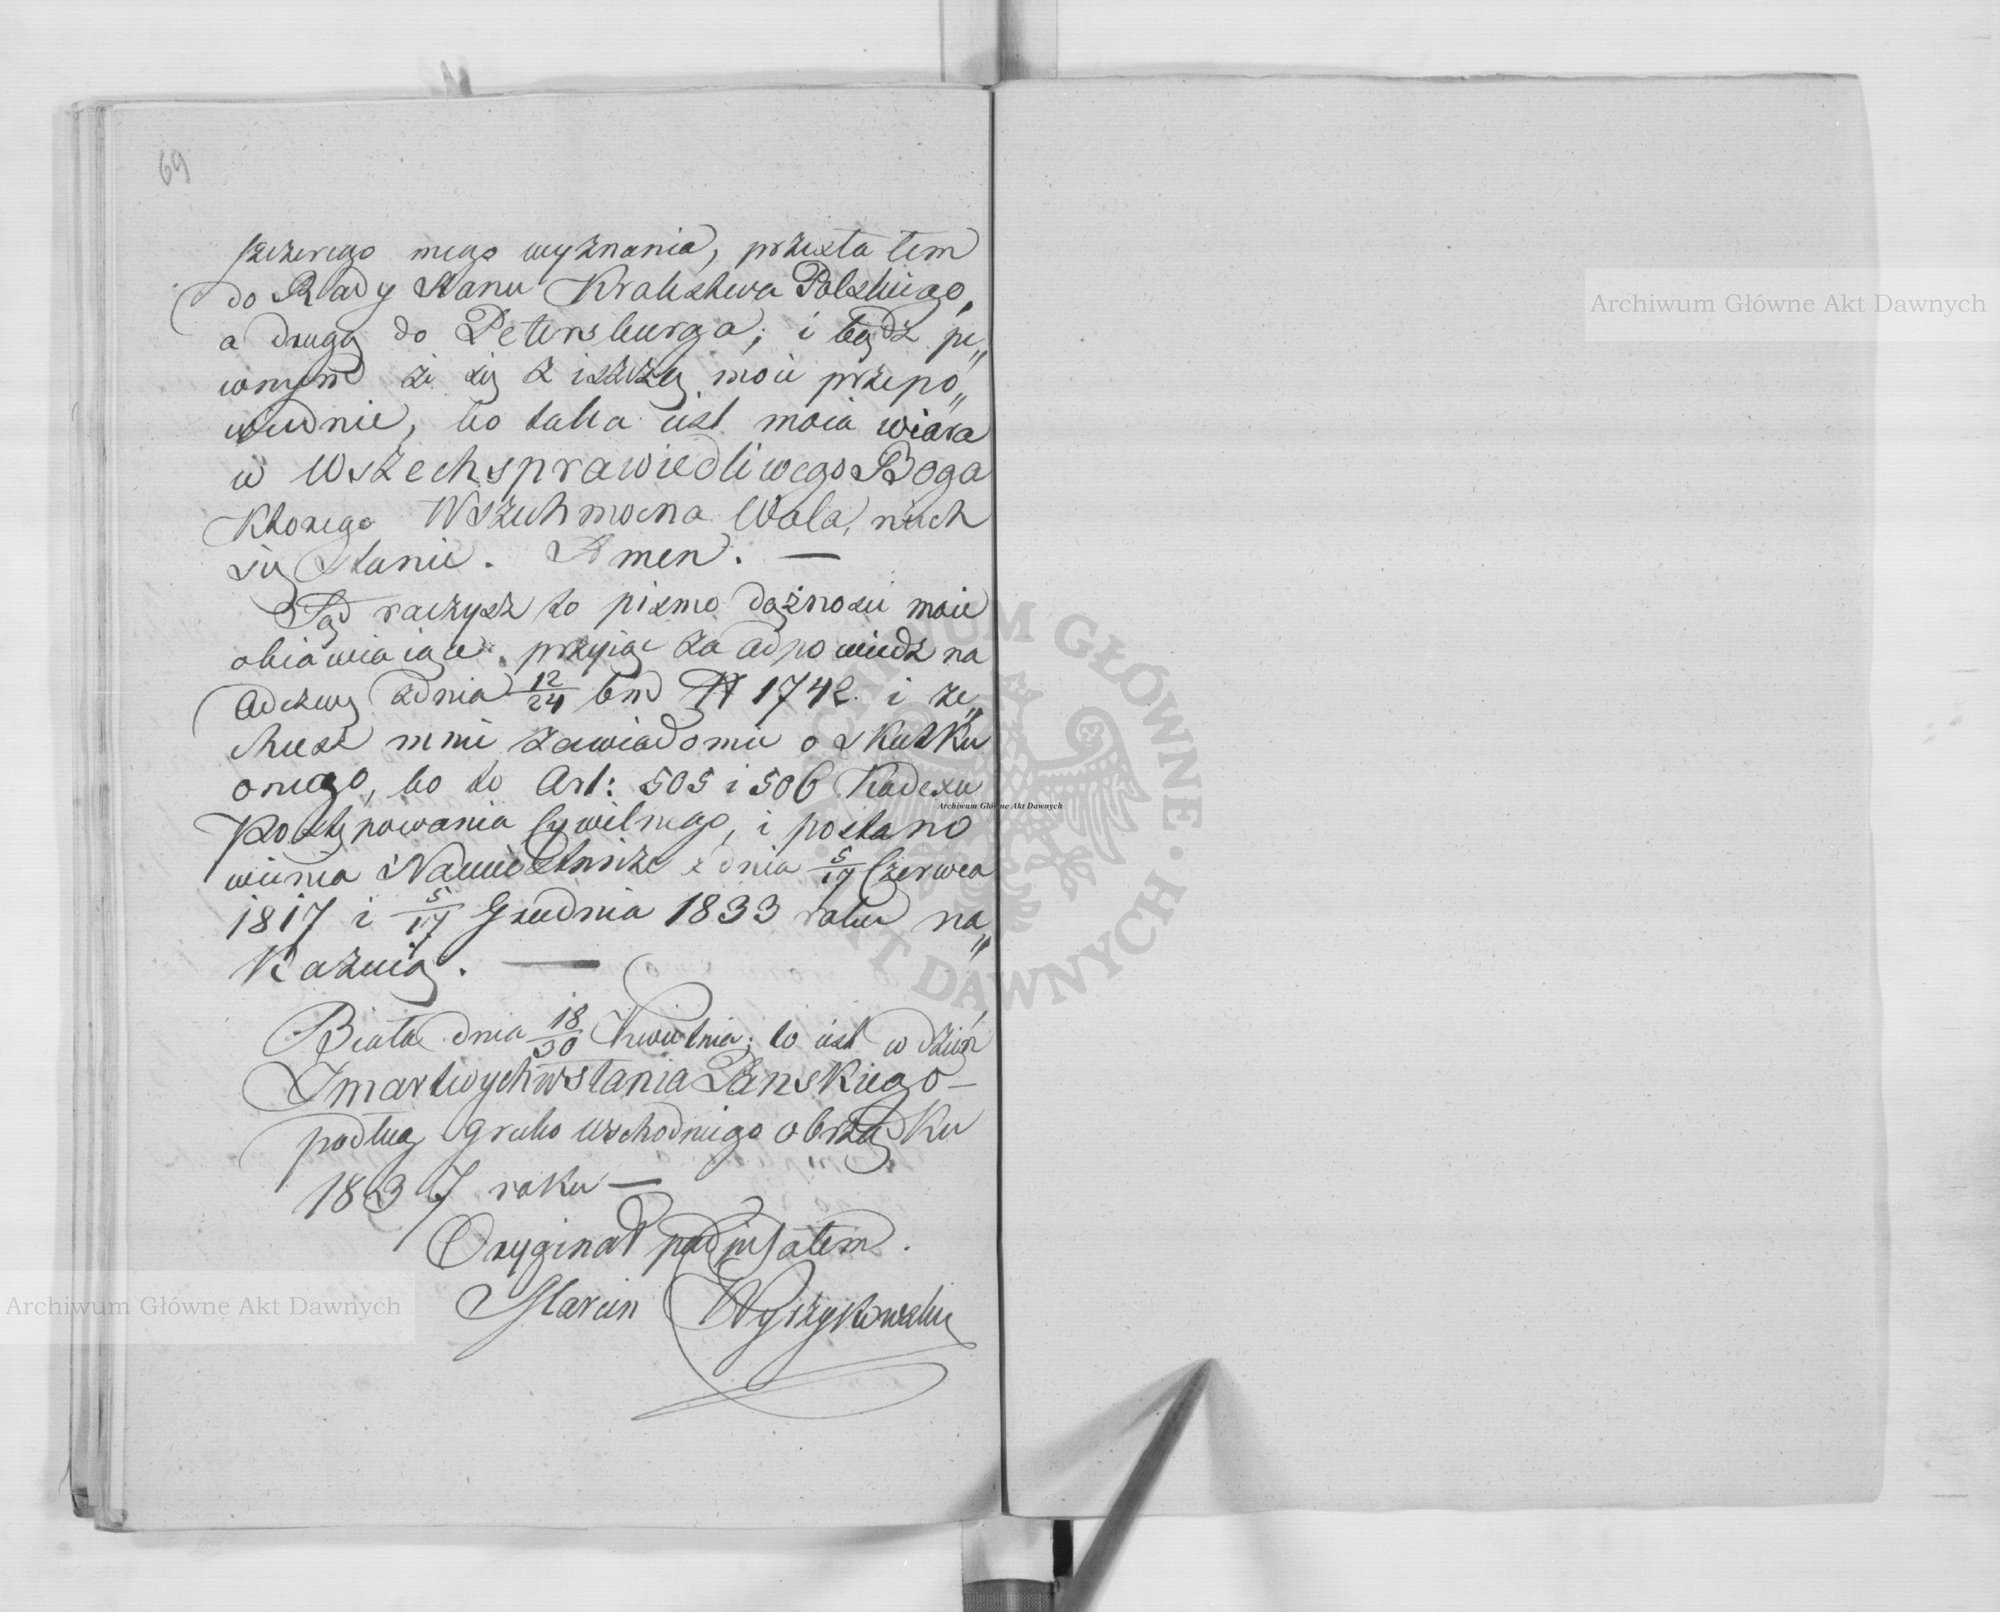 69
szczerego mego wyznania, przesłałem
do Rady Stanu Królestwa Polskiego,
a drugą do Petersburga; i bądź pe„
wnym że się ziszczą moie przepo„
wiednie, bo taka iest moia wiara
w Wszechsprawiedliwego Boga
Którego Wszechmocna Wola, niech
się Stanie. Amen. —
Sąd raczysz to pismo dążności moie
obiawiaiące, przyiąć za odpowiedz na
Odezwę z dnia 12/24 bm N 1742. i ze„
chcesz mnie zawiadomić o skutku
onego, bo to Art: 505 i 506 Kodexu
Postępowania Cywilnego, i postano
wienia Namiestnika z dnia 5/17 Czerwca
1817 i 5/17 Grudnia 1833 roku na„
Kazuią. —
Biała dnia 18/30 Kwietnia; to iest w dzień
Zmartwychwstania Pańskiego —
podług greko wschodniego obrządku
1837 roku —
Oryginał podpisałem.
Marcin Wyrzykowski
Archiwum Główne Akt Dawnych
Archiwum Główne Akt Dawnych
Archiwum Główne Akt Dawnych
ARCHIWUM GŁÓWNE AKT DAWNYCH